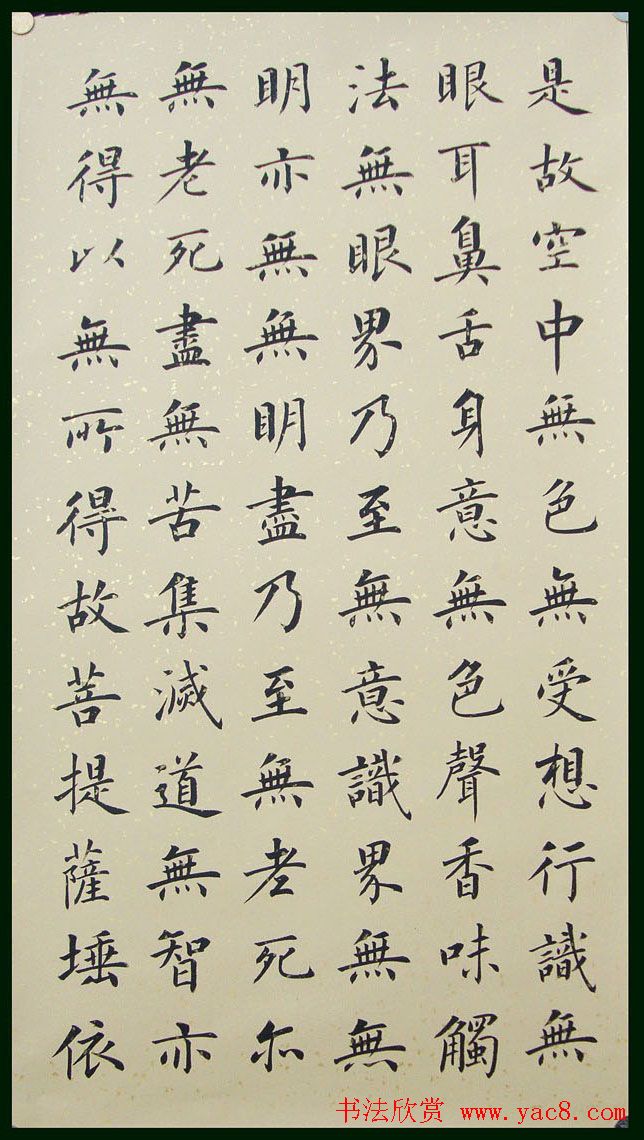 是故空中無色無受想行識無
眼耳鼻舌身意無色聲香味觸
法無眼界乃至無意識界無無
明亦無無明盡乃至無老死亦
無老死盡無苦集滅道無智亦
無得以無所得故菩提薩埵依
书法欣赏 www.yac8.com